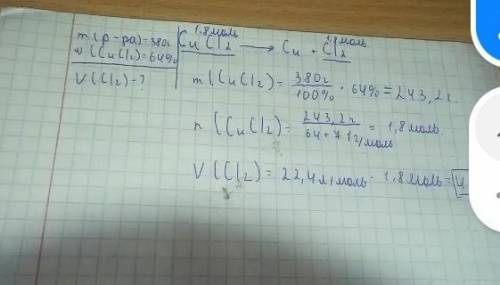 m(р-ра)=380г
w(CuCl2)=64%
V(Cl2)-?
1,8моль
CuCl2 → Cu + Cl2
m(CuCl2)= 380г/100% · 64%=243,2г.
n(CuCl2)= 243,2г/64+71г/моль = 1,8моль
V(Cl2)= 22,4л/моль · 1,8моль=